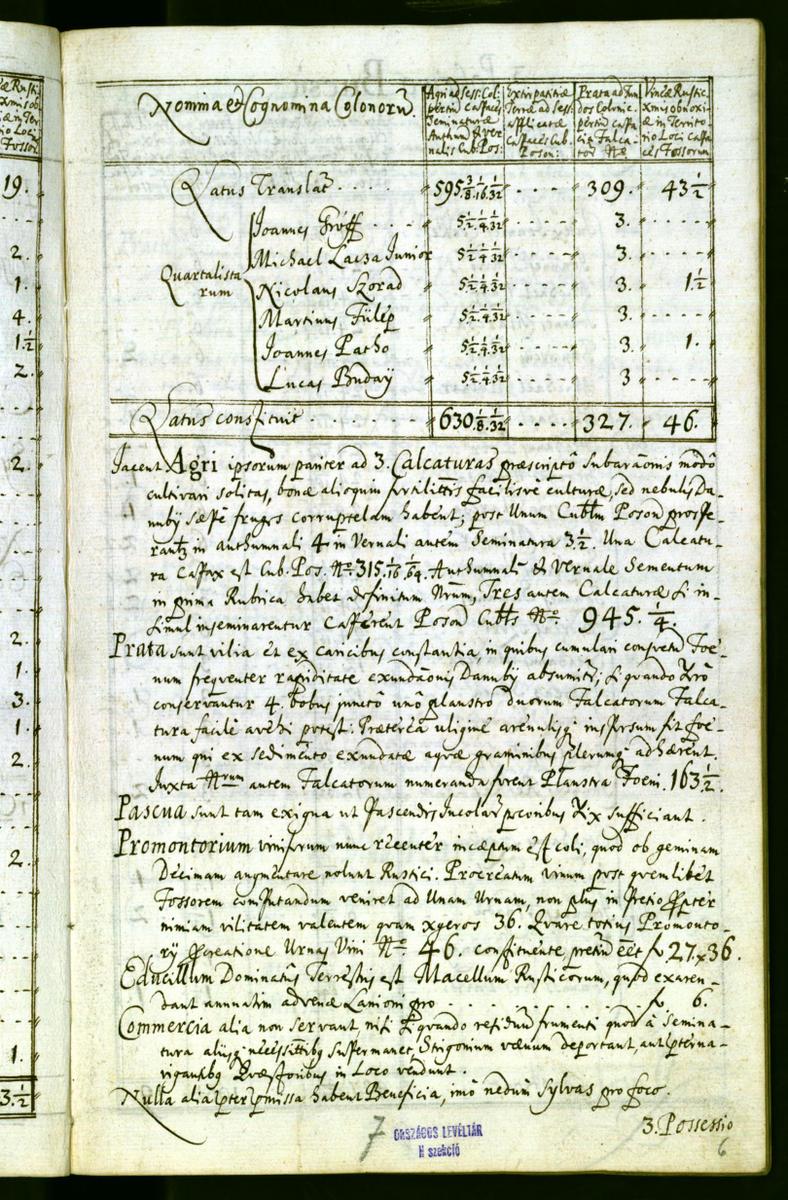 Nomina et Cognomina Colonorū.
Agri ad Sess: Col: pertin capaces Seminaturæ Authum̄: et Vernalis Cub: Pos:
Extirpatitiæ Terræ ad Sess: applicatæ capaces Cub. Poson:
Prata ad fundos Colonic: pertin capacia Falcatorū Nro
Vineæ Rustic: Xmis obnoxiæ in Territorio Loci capaces Fossorum
Latus Translat. . . . . 595 3/8. 1/16. 1/32 . . . . 309. 43 1/2
Quartalistarum
Joannes Gróff . . . . 5 1/2. 1/4. 1/32 . . . . 3. . . . .
Michael Lacza Junior 5 1/2. 1/4. 1/32 . . . . 3. . . . .
Nicolaus Szorad 5 1/2. 1/4. 1/32 . . . . 3. 1 1/2
Martinus Fülep 5 1/2. 1/4. 1/32 . . . . 3. . . . .
Joannes Patho 5 1/2. 1/4. 1/32 . . . . 3. 1.
Lucas Buday 5 1/2. 1/4. 1/32 . . . . 3 . . . .
Latus constituit . . . . . . . 630. 1/8. 1/32 . . . . 327. 46.
Jacent Agri ipsorum pariter ad 3. Calcaturas præscriptô subarãonis modô
cultivari solitas, bonæ alioquin fertilittis facilisvè culturæ, sed nebulis Da-
nuby sæpè fruges corruptelam habent; post Unum Cubtm Poson prospe-
rant in authumnali 4. in Vernali autem Seminatura 3 1/2. Una Calcatu-
ra capax est Cub. Pos. Nro. 315. 1/16. 1/64. Authumnale & Vernale Sementum
in prima Rubrica habet definitum Nrum, Tres autem Calcaturæ si in-
simul inseminarentur capperent Poson Cubts Nro. 945. 1/4.
Prata sunt vilia et ex caricibus constantia, in quibus cumulari consvetū Foe-
num frequenter rapiditate exundãonis Danuby absumitr; si quando vrò
conservantur 4. bobus junctô unô plaustrô duorum Falcatorum Falca-
tura facilè avehi potest. Præterea uligine arenulisq; inspersum fit foe-
num qui ex sedimento exundatæ aquæ graminibus plerumq; adhærent.
Juxta Nrum autem Falcatorum numeranda forent Plaustra Foeni. 163 1/2.
Pascua sunt tam exigua ut Pascendis Incolar pecoribus vix sufficiant.
Promontorium viniferum nunc recenter incæptum est coli, quod ob geminam
Decimam augmentare nolunt Rustici. Procreatum vinum post quemlibet
Fossorem computandum veniret ad Unam Urnam, non plus in pretio ppter
nimiam vilitatem valentem quam xgeros 36. Quare totius Promonto-
ry pcreatione Urnas Vini Nro. 46. constituente pretiū eēt f. 27. x 36.
Educillum Dominatûs Terrestris est Macellum Rusticorum, quod exaren-
dant annuatim advenæ Lanioni pro . . . . . . . . . . f. 6.
Commercia alia non servant, nisi si quando residuū frumenti quod â semina-
tura alijsq; necessittibq superմanet, Strigonium vænum deportant, aut pterna-
vigantibq Quæstoribus in Loco vendunt.
Nulla alia pter pmissa habent Beneficia, imò nedum sylvas pro foco.
3. Possessio
7
ORSZÁGOS LEVÉLTÁR
N szekció
6